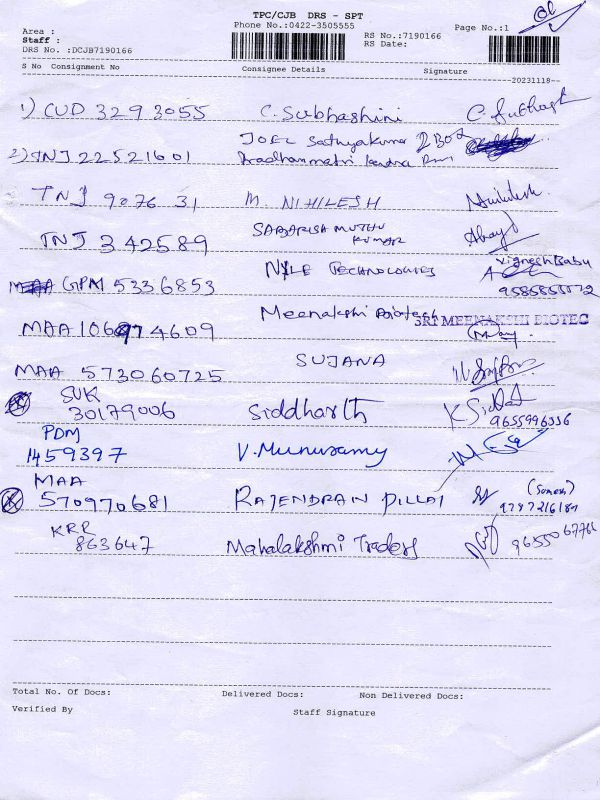 TPC/CJB DRS - SPT
Phone No.:0422-3505555
Page No.:1
Area :
Staff :
DRS No. :DCJB7190166
RS No.:7190166
RS Date:
S No Consignment No Consignee Details Signature
20231118
1) CUD 3293055 C. Subhashini
2) TNJ 22521601 JOEL Sathyakumar
Pradhanmatri kendra
TNJ 907631 M. NIHILESH
TNJ 342589 SABARISH MUTHU
KUMAR
GPM 5336853 NYLE TECHNOLOGIES Vignesh Babu
MAA 4609 Meenakshi Biotech SRI MEENAKSHI BIOTEC
MAA 573060725 SUJANA
SUK
30179006 Siddharth 9655996336
PDM
1459397 V. Munusamy
MAA
570970681 RAJENDRAN PILLAI
KRR
863647 Mahalakshmi Traders
Total No. Of Docs: Delivered Docs: Non Delivered Docs:
Verified By Staff Signature